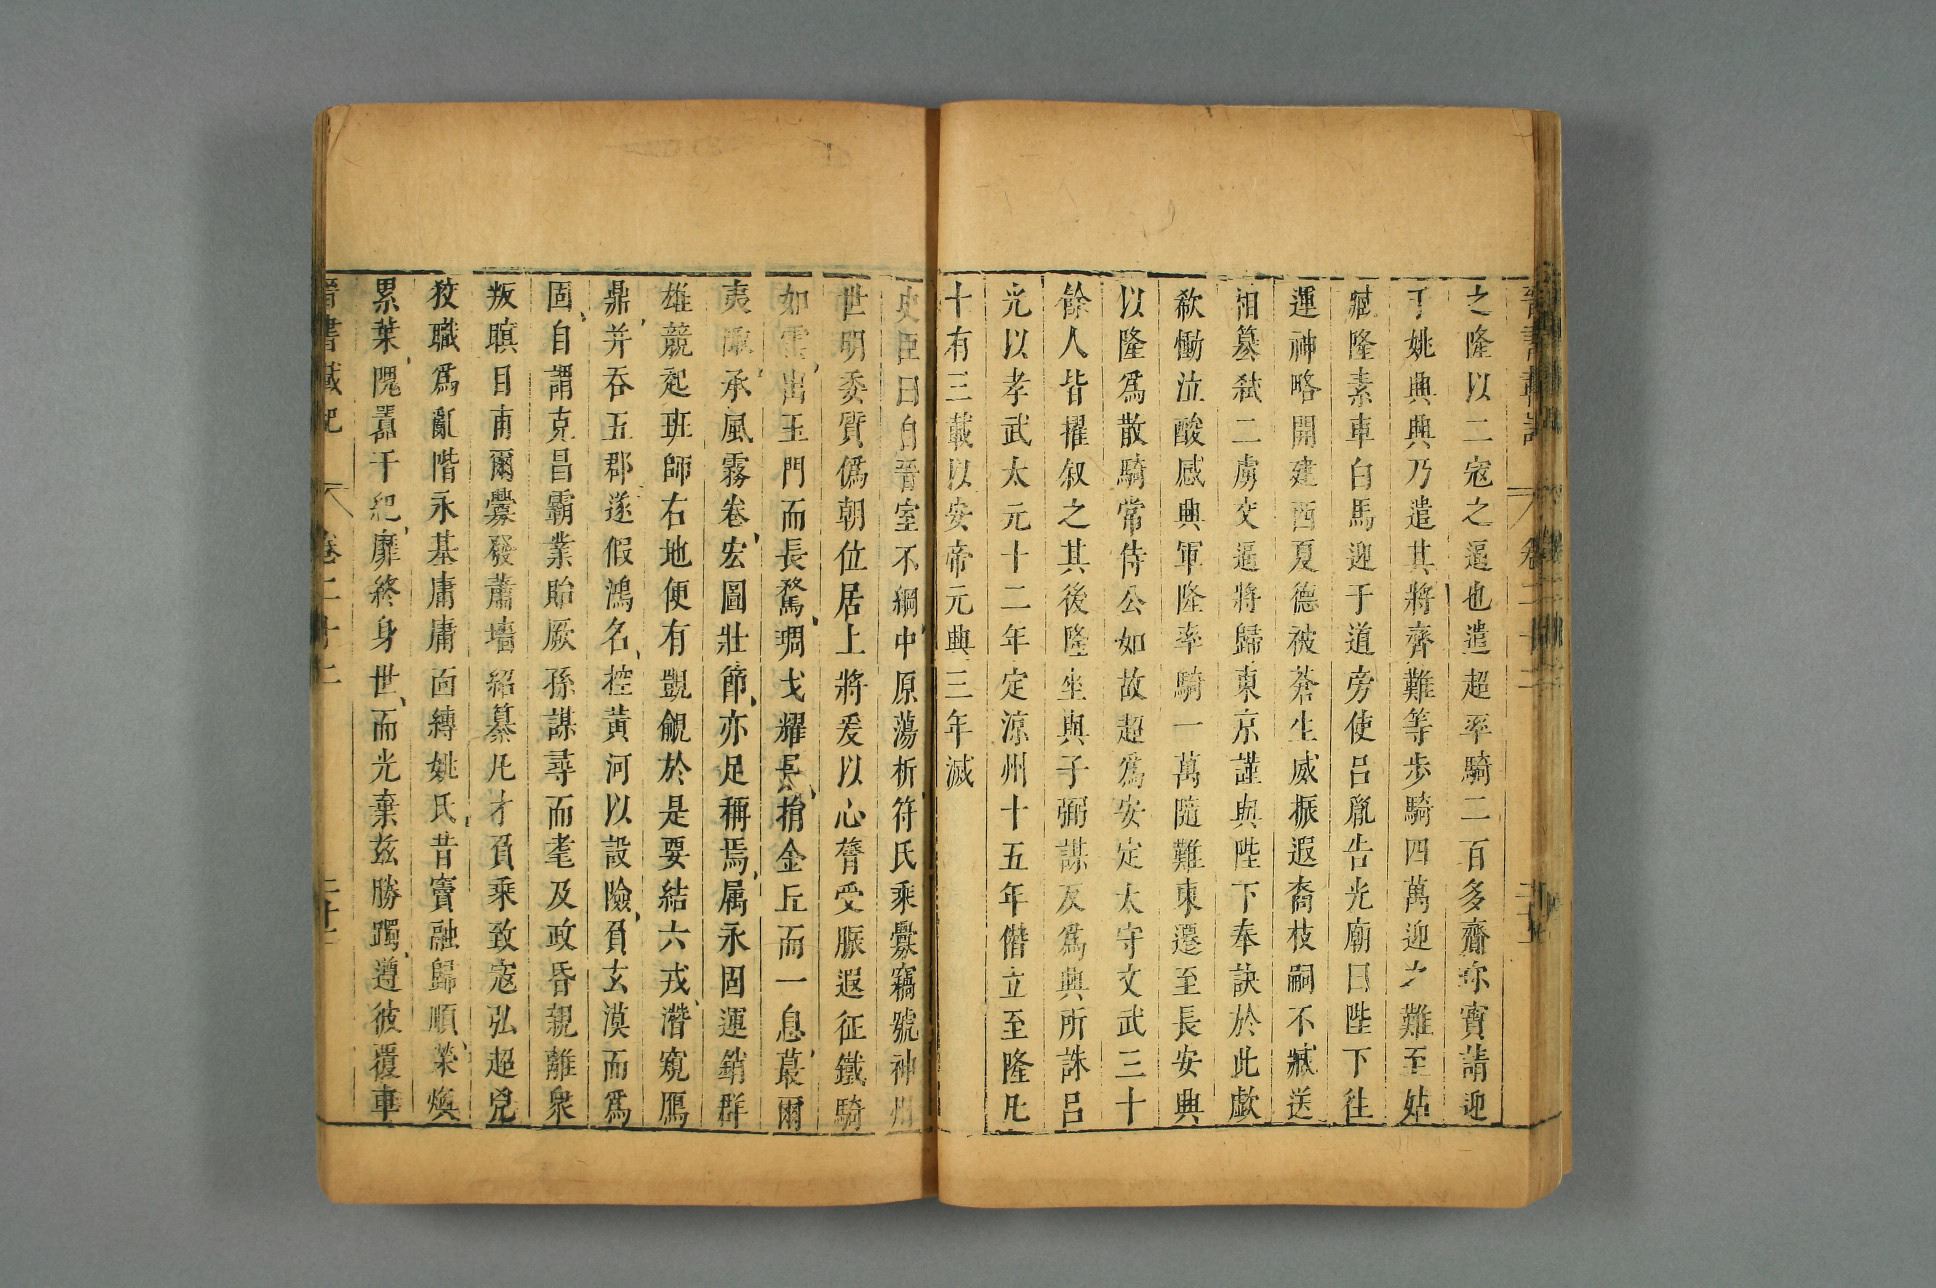 之隆以二寇之逼也遣超率騎二百多齎珎寳請迎
于姚興興乃遣其將齊難等步騎四萬迎之難至姑
臧隆素車白馬迎于道旁使吕胤告光廟曰陛下往
運神略開建西夏德被蒼生威振遐裔枝嗣不臧送
相簒弒二虜交逼將歸東京謹與陛下奉訣於此歔
欷慟泣酸感興軍隆率騎一萬隨難東遷至長安興
以隆爲散騎常侍公如故超爲安定太守文武三十
餘人皆擢叙之其後隆坐與子弼謀反爲興所誅吕
光以孝武太元十二年定涼州十五年僭立至隆凡
十有三載以安帝元興三年滅
史臣曰自晉室不綱中原蕩析符氏乘釁竊號神州
世明委質僞朝位居上將爰以心膂受脤遐征鐵騎
如雲出玉門而長騖琱戈耀長捎金丘而一息蕞爾
夷陬承風霧卷宏圖壯節亦足稱焉属永固運銷群
雄競起班師右地便有覬覦於是要結六戎潛窺鴈
鼎并吞五郡遂假鴻名控黃河以設險負玄漠而爲
固自謂克昌霸業貽厥孫謀尋而耄及政昏親離衆
叛瞋目甫爾釁發蕭墻紹纂凡才負乘致寇弘超兇
狡職爲亂階永基庸庸面縛姚氏昔竇融歸順榮煥
累葉隗嚻干紀靡終身世而光棄兹勝躅遵彼覆車
晉書載記 卷二十二